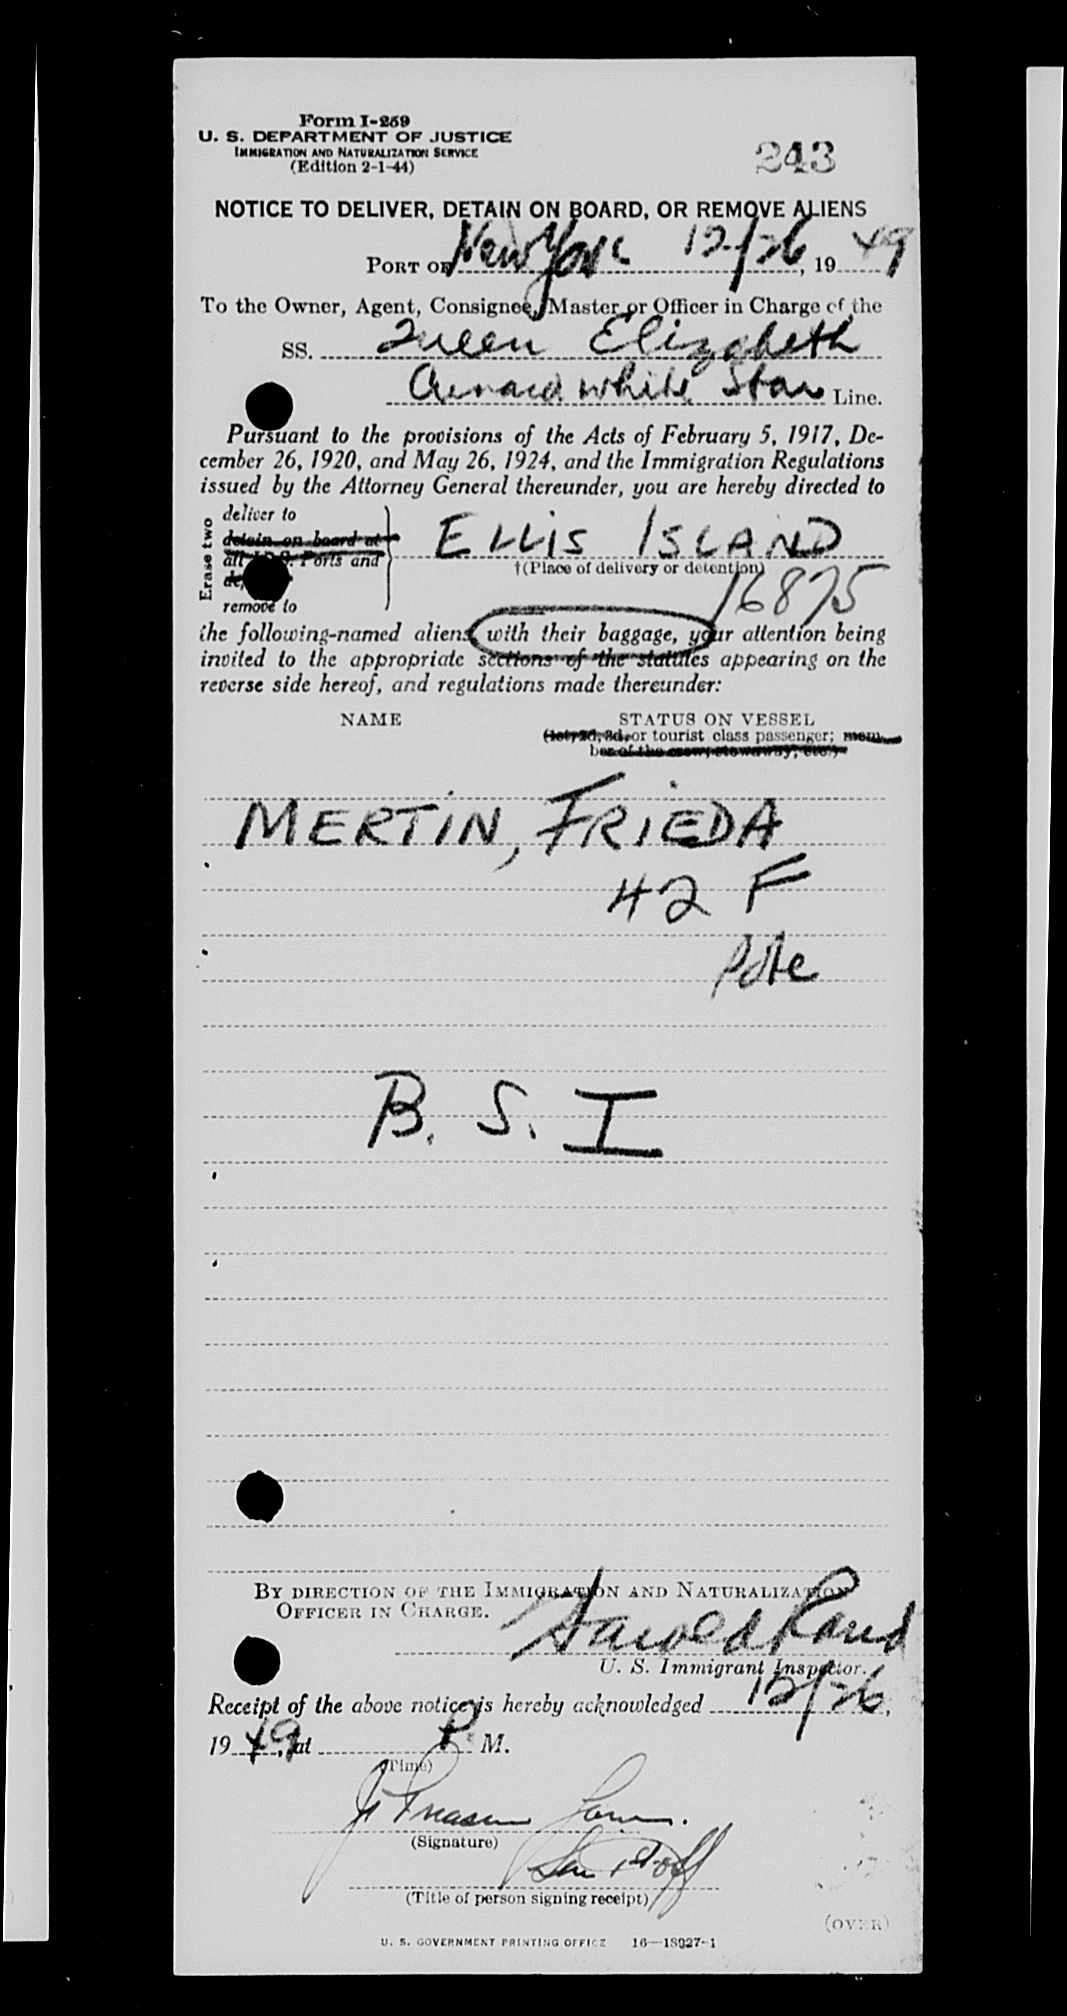 Form I-259
U. S. DEPARTMENT OF JUSTICE
IMMIGRATION AND NATURALIZATION SERVICE
(Edition 2-1-44)
243
NOTICE TO DELIVER, DETAIN ON BOARD, OR REMOVE ALIENS
PORT OF New York 12/26, 19 49
To the Owner, Agent, Consignee, Master or Officer in Charge of the
SS. Queen Elizabeth
Cunard White Star Line.
Pursuant to the provisions of the Acts of February 5, 1917, De-
cember 26, 1920, and May 26, 1924, and the Immigration Regulations
issued by the Attorney General thereunder, you are hereby directed to
Erase two
deliver to
detain on board at
all U.S. Ports and
remove to
ELLIS ISLAND
†(Place of delivery or detention)
16875
the following-named aliens with their baggage, your attention being
invited to the appropriate sections of the statutes appearing on the
reverse side hereof, and regulations made thereunder:
NAME STATUS ON VESSEL
(1st, 2d, 3d, or tourist class passenger; mem-
ber of the crew; stowaway, etc.)
MERTIN, FRIEDA
42 F
Pole
B. S. I
BY DIRECTION OF THE IMMIGRATION AND NATURALIZATION
OFFICER IN CHARGE.
Harold Rand
U. S. Immigrant Inspector.
Receipt of the above notice is hereby acknowledged 12/26,
19 49, at P. M.
(Time)
(Signature)
(Title of person signing receipt)
(OVER)
U. S. GOVERNMENT PRINTING OFFICE 16—18027-1